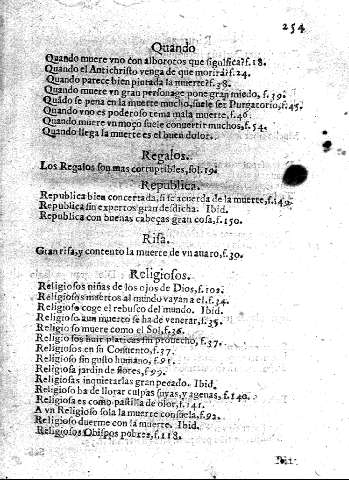 254
Quando
Quando muere vno con alborotos que significa? f. 18.
Quando el Antichristo venga de que morirà? f. 24.
Quando parece bien pintada la muerte? f. 38.
Quando muere vn gran personage pone gran miedo, f. 39.
Quãdo se pena en la muerte mucho, suele ser Purgatorio, f. 45.
Quando vno es poderoso tema mala muerte, f. 46.
Quando muere vn moço suele conuertir muchos, f. 54.
Quando llega la muerte es el buen dolor.
Regalos.
Los Regalos son mas corruptibles, fol. 19.
Republica.
Republica bien concertada, si se acuerda de la muerte, f. 149.
Republica sin expertos gran desdicha. Ibid.
Republica con buenas cabeças gran cosa, f. 150.
Risa.
Gran risa, y contento la muerte de vn auaro, f. 30.
Religiosos.
Religiosos niñas de los ojos de Dios, f. 102.
Religiosos muertos al mundo vayan a el, f. 34.
Religioso coge el rebusco del mundo. Ibid.
Religioso aun muerto se ha de venerar, f. 35.
Religioso muere como el Sol, f. 36.
Religiosos huir platicas sin prouecho, f. 37.
Religiosos en su Conuento, f. 37.
Religioso sin gusto humano, f. 91.
Religiosa jardin de flores, f. 99.
Religiosas inquietarlas gran pecado. Ibid.
Religioso ha de llorar culpas suyas, y agenas, f. 140.
Religiosa es como pastilla de olor, f. 141.
A vn Religioso sola la muerte consuela, f. 92.
Religioso duerme con la muerte. Ibid.
Religiosos Obispos pobres, f. 118.